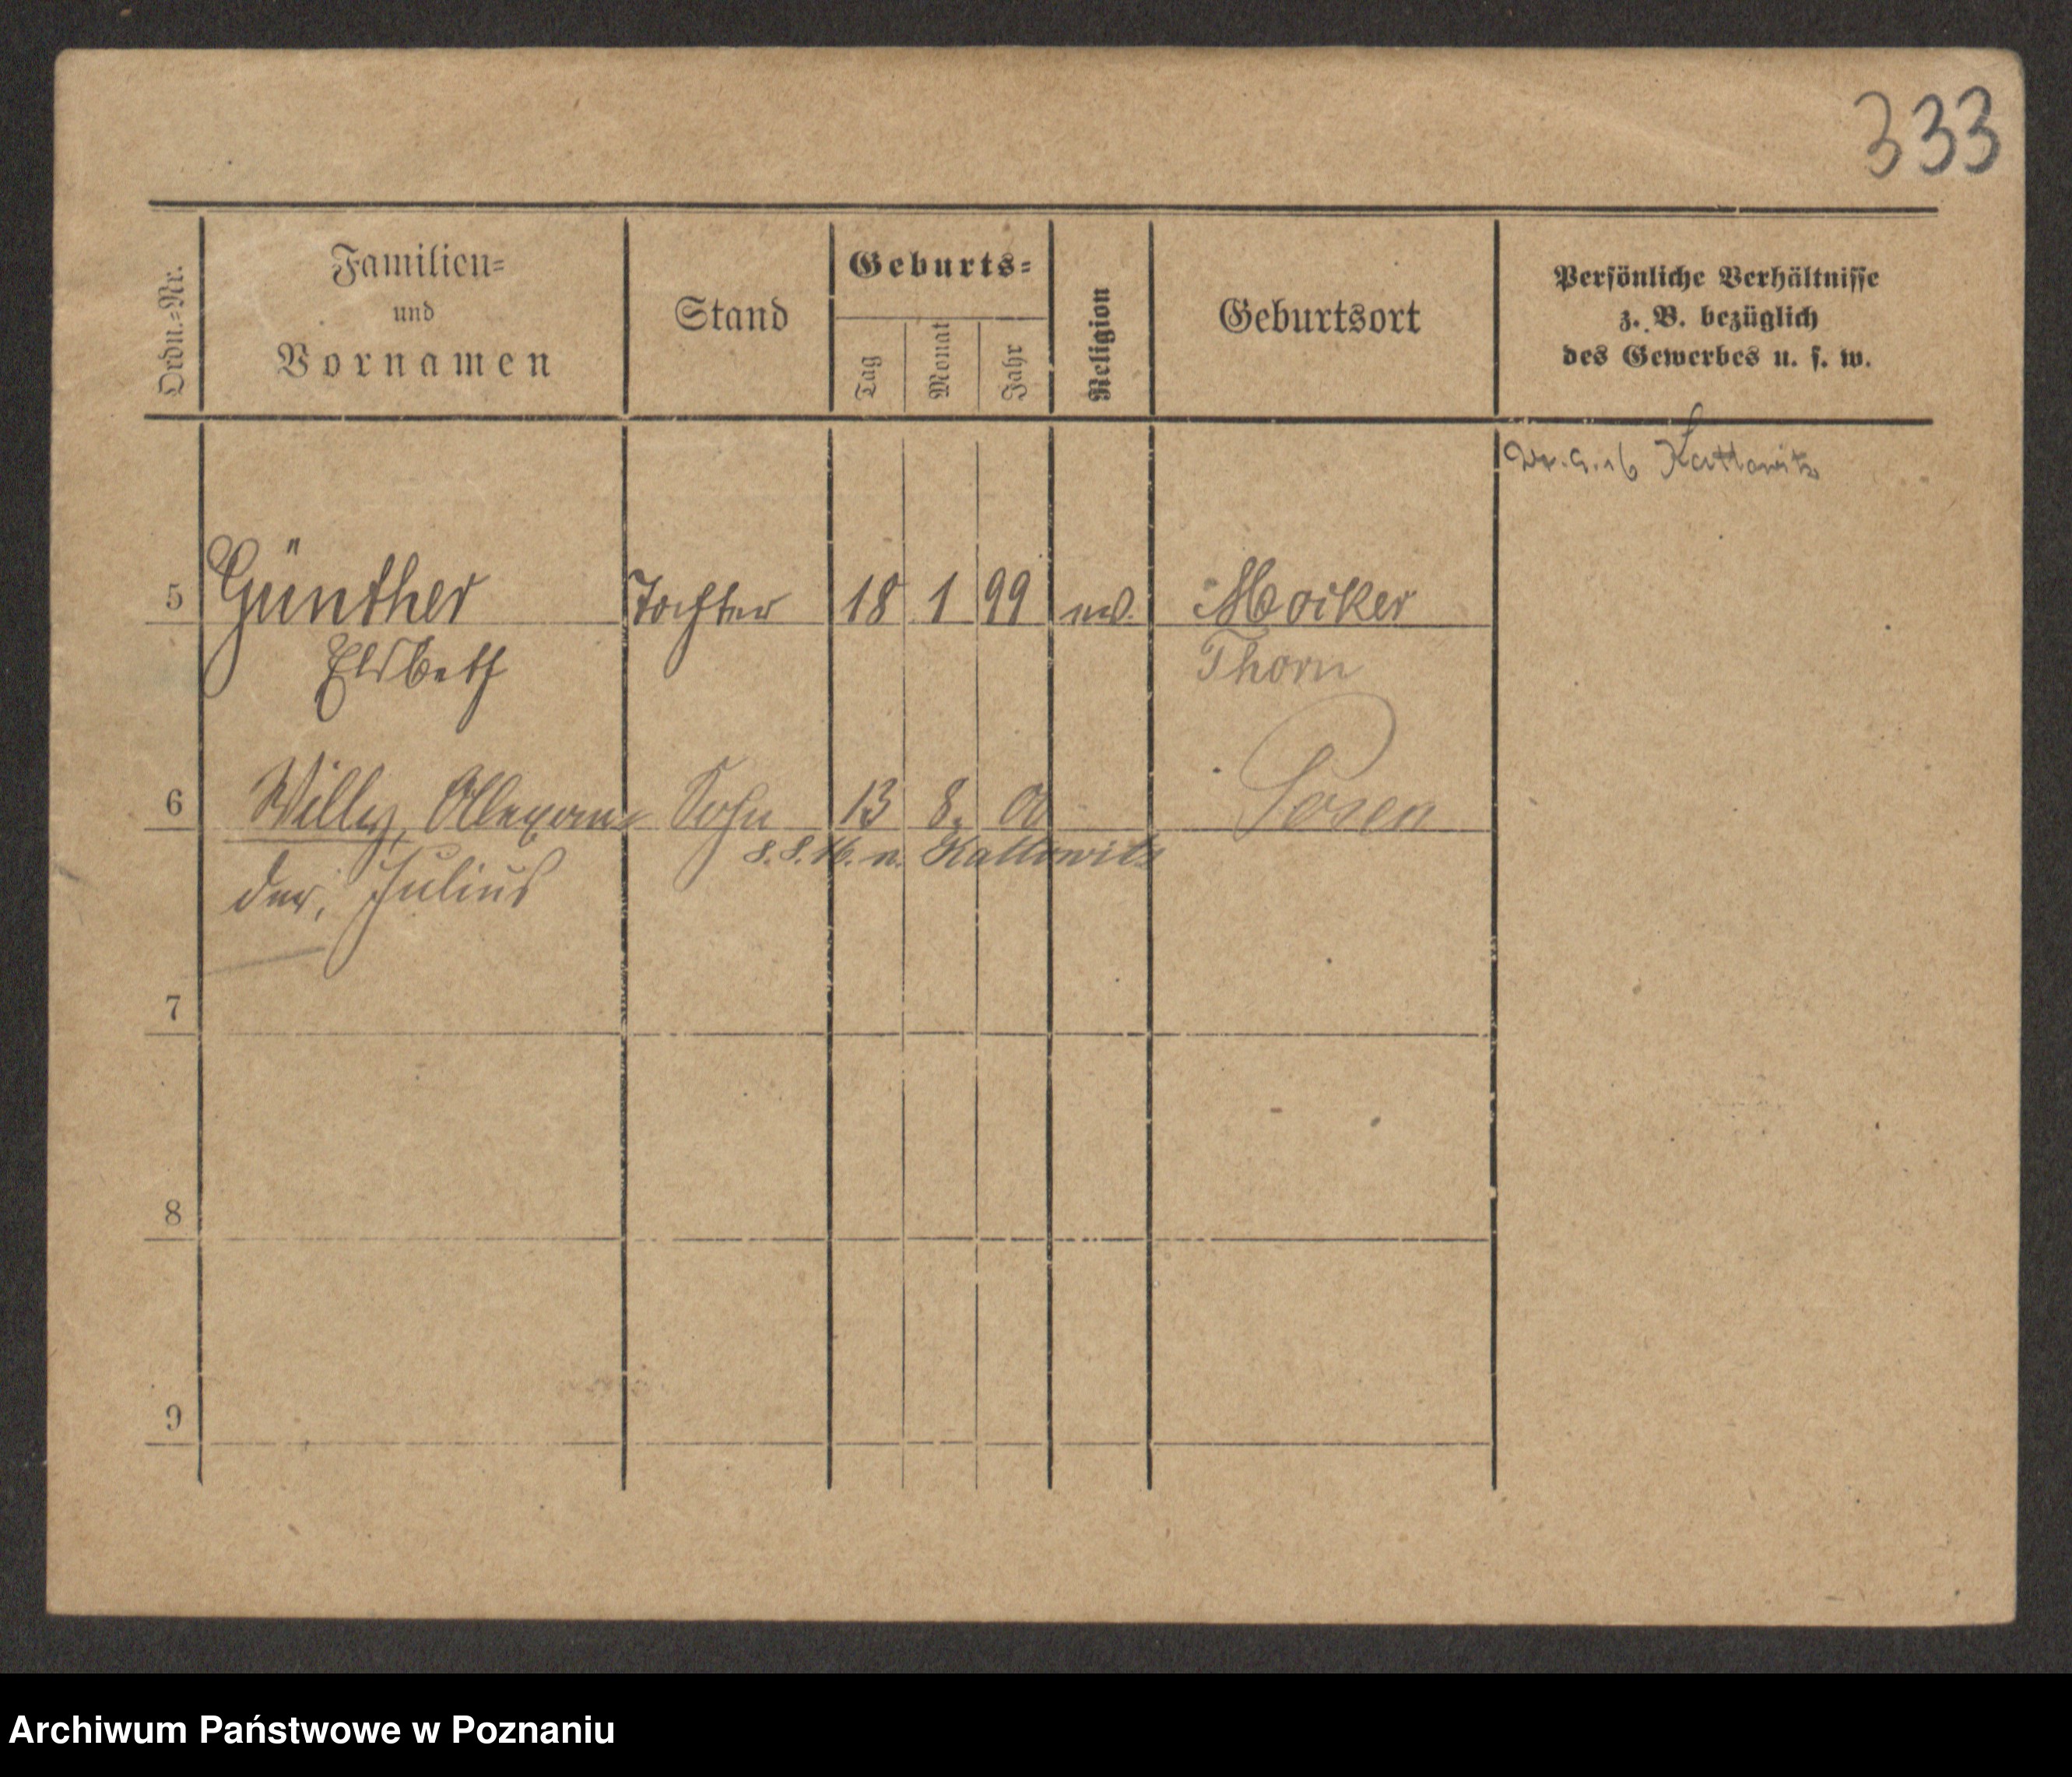 333
Ordn.-Nr.
Familien-
und
Vornamen
Stand
Geburts-
Tag
Monat
Jahr
Religion
Geburtsort
Persönliche Verhältnisse
z. B. bezüglich
des Gewerbes u. s. w.
Kattowitz
5 Günther Tochter 18 1 99 ev. Mocker
Elsbeth Thorn
6 Willy, Alexan- Sohn 13 8. 00 Posen
8.8.16. n. Kattowitz
der, Julius
7
8
9
Archiwum Państwowe w Poznaniu